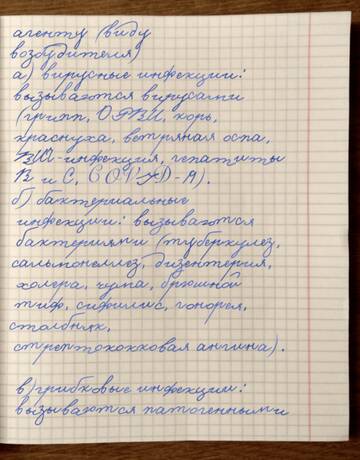 агенту (виду
возбудителя)
а) вирусные инфекции:
вызываются вирусами
(грипп, ОРВИ, корь,
краснуха, ветряная оспа,
ВИЧ-инфекция, гепатиты
В и С, COVID-19).
б) бактериальные
инфекции: вызываются
бактериями (туберкулез,
сальмонеллез, дизентерия,
холера, чума, брюшной
тиф, сифилис, гонорея,
столбняк,
стрептококковая ангина).
в) грибковые инфекции:
вызываются патогенными